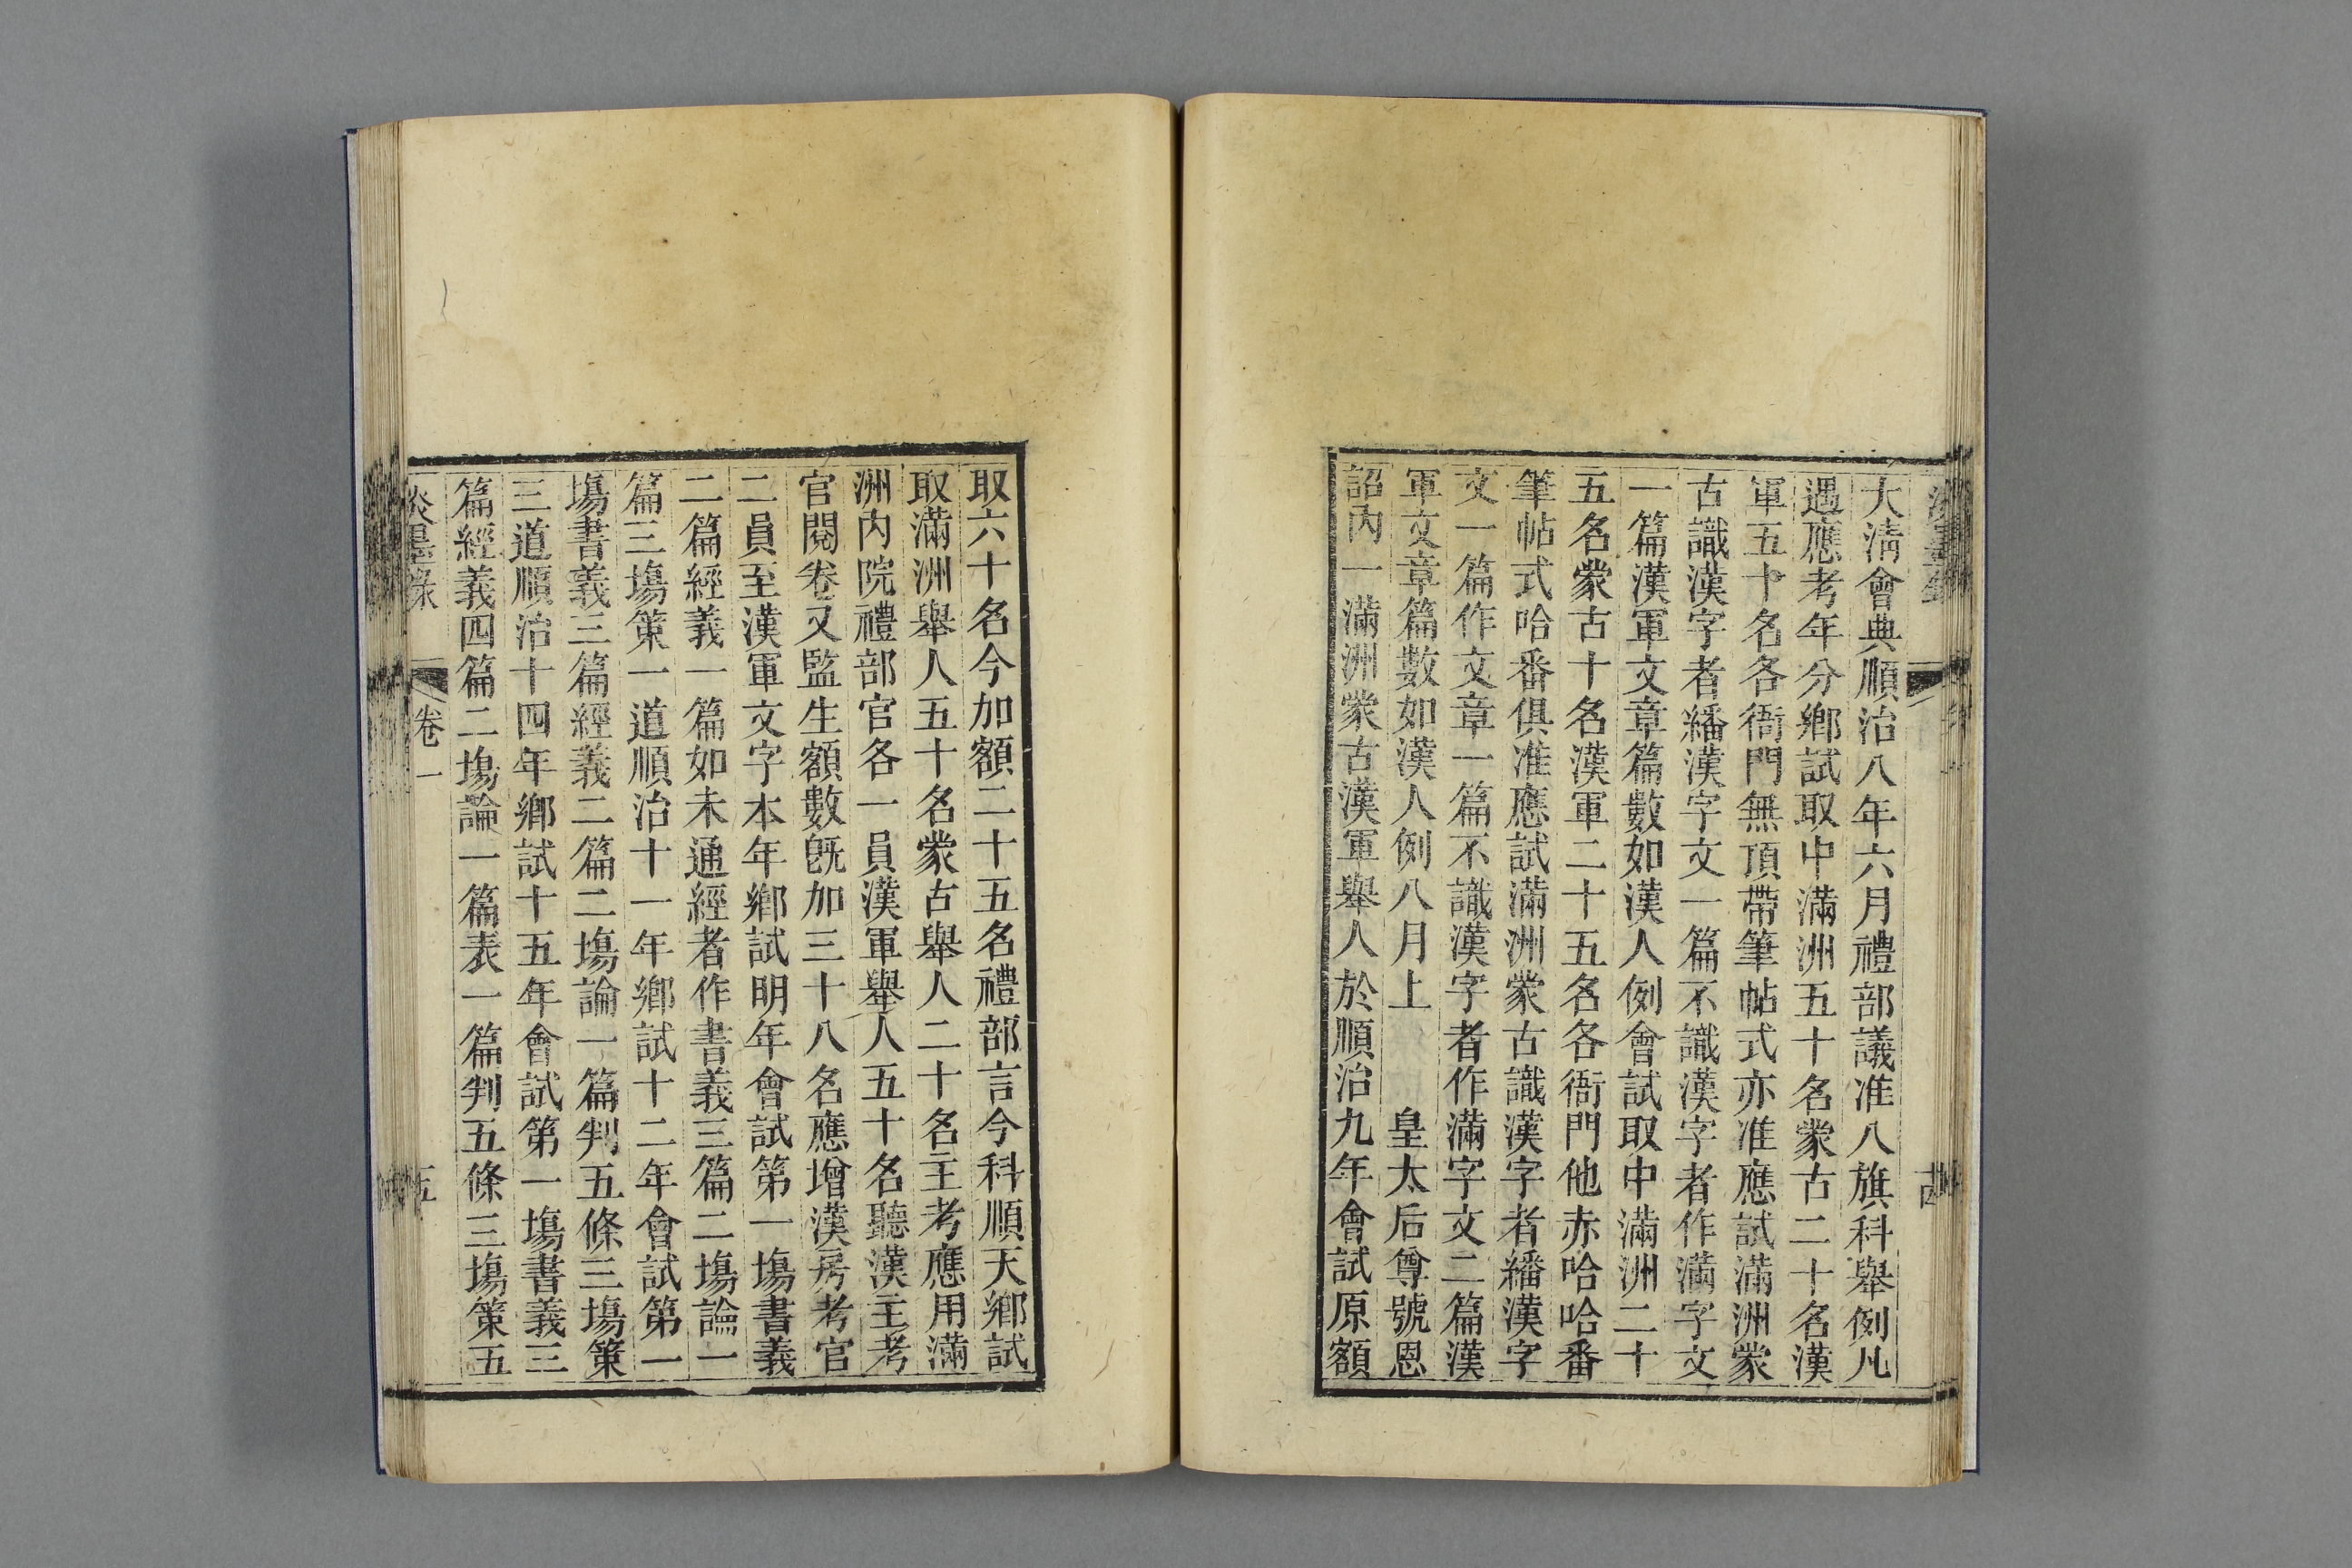 大淸會典順治八年六月禮部議准八旗科舉例凡
遇應考年分鄕試取中滿洲五十名蒙古二十名漢
軍五十名各衙門無頂帶筆帖式亦准應試滿洲蒙
古識漢字者繙漢字文一篇不識漢字者作滿字文
一篇漢軍文章篇數如漢人例會試取中滿洲二十
五名蒙古十名漢軍二十五名各衙門他赤哈哈番
筆帖式哈番俱准應試滿洲蒙古識漢字者繙漢字
文一篇作文章一篇不識漢字者作滿字文二篇漢
軍文章篇數如漢人例八月上 皇太后尊號恩
詔內一滿洲蒙古漢軍舉人於順治九年會試原額
取六十名今加額二十五名禮部言今科順天鄕試
取滿洲舉人五十名蒙古舉人二十名主考應用滿
洲內院禮部官各一員漢軍舉人五十名聽漢主考
官閱卷又監生額數旣加三十八名應增漢房考官
二員至漢軍文字本年鄕試明年會試第一塲書義
二篇經義一篇如未通經者作書義三篇二塲論一
篇三塲策一道順治十一年鄕試十二年會試第一
塲書義三篇經義二篇二塲論一篇判五條三塲策
三道順治十四年鄕試十五年會試第一塲書義三
篇經義四篇二塲論一篇表一篇判五條三塲策五
卷一